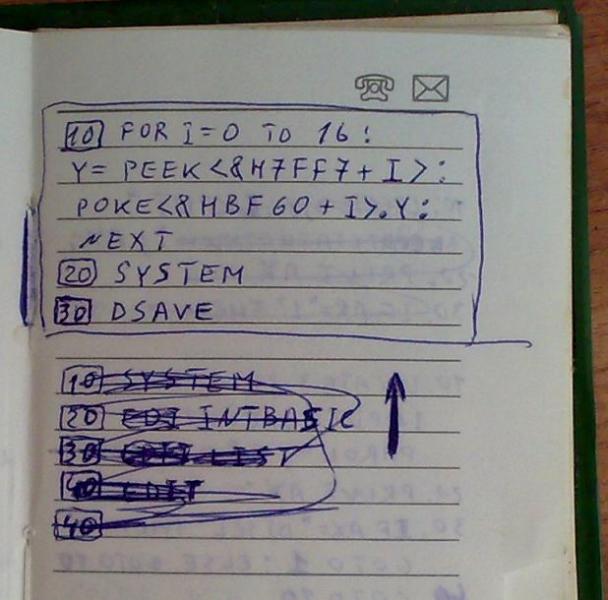 10 FOR I=0 TO 16:
Y= PEEK<&H7FF7+I>:
POKE<&HBF60+I>.Y:
NEXT
20 SYSTEM
30 DSAVE
10 SYSTEM
20 EDI INTBASIC
30 EDIT LIST
40 EDIT
40